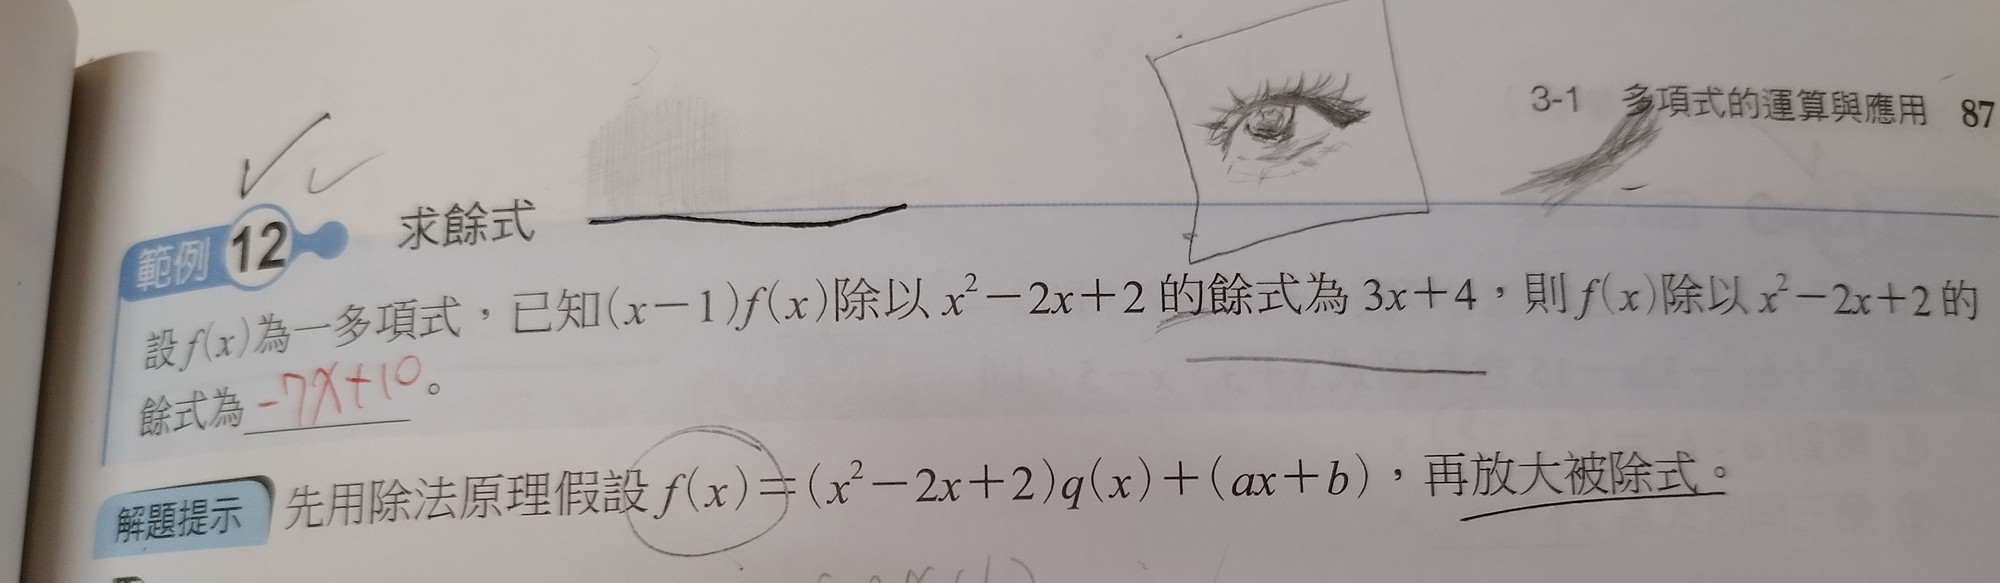 3-1 多項式的運算與應用 87
範例 12 求餘式
設 f(x) 為一多項式，已知(x－1)f(x)除以 x²－2x＋2 的餘式為 3x＋4，則 f(x)除以 x²－2x＋2 的
餘式為 -7x+10 。
解題提示 先用除法原理假設 f(x)＝(x²－2x＋2)q(x)＋(ax＋b)，再放大被除式。